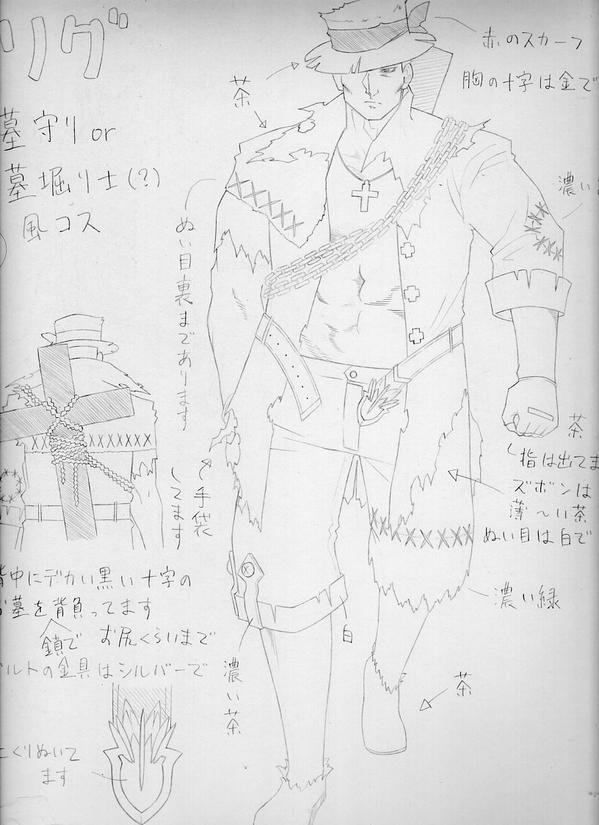 リグ
墓守り or
墓堀り士(?)
風コス
茶
赤のスカーフ
胸の十字は金で
濃い
ぬい目裏まであります
手袋
してます
茶
指は出てま
ズボンは
薄〜い茶
ぬい目は白で
濃い緑
茶
白
濃い茶
背中にデカい黒い十字の
お墓を背負ってます
鎖で お尻くらいまで
ベルトの金具はシルバーで
くりぬいて
ます